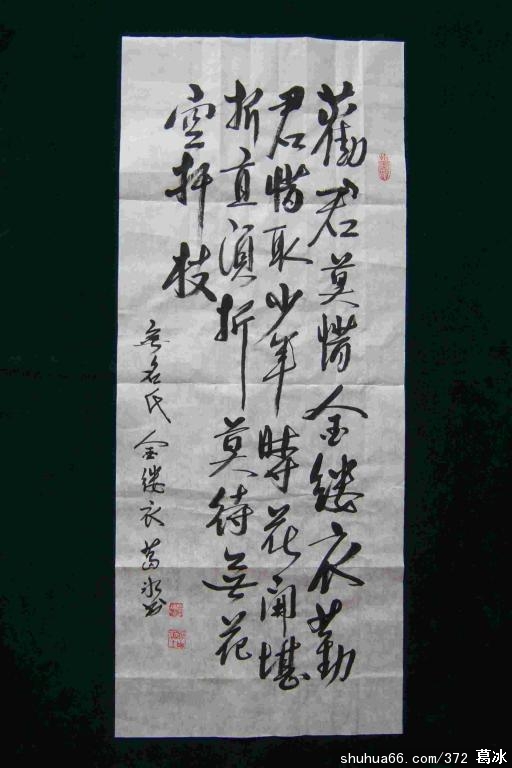 勸君莫惜金縷衣勸
君惜取少年時花開堪
折直須折莫待無花
空折枝
無名氏金縷衣葛冰書
shuhua66.com/372 葛冰